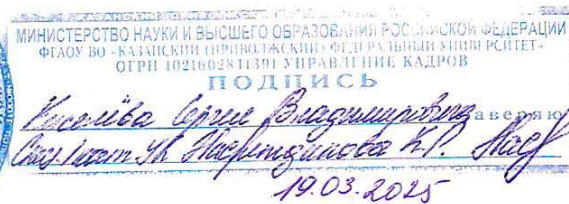 МИНИСТЕРСТВО НАУКИ И ВЫСШЕГО ОБРАЗОВАНИЯ РОССИЙСКОЙ ФЕДЕРАЦИИ
ФГАОУ ВО «КАЗАНСКИЙ (ПРИВОЛЖСКИЙ) ФЕДЕРАЛЬНЫЙ УНИВЕРСИТЕТ»
ОГРН 1021602841391 УПРАВЛЕНИЕ КАДРОВ
ПОДПИСЬ
Киселёва Сергея Владимировича заверяю
19.03.2025